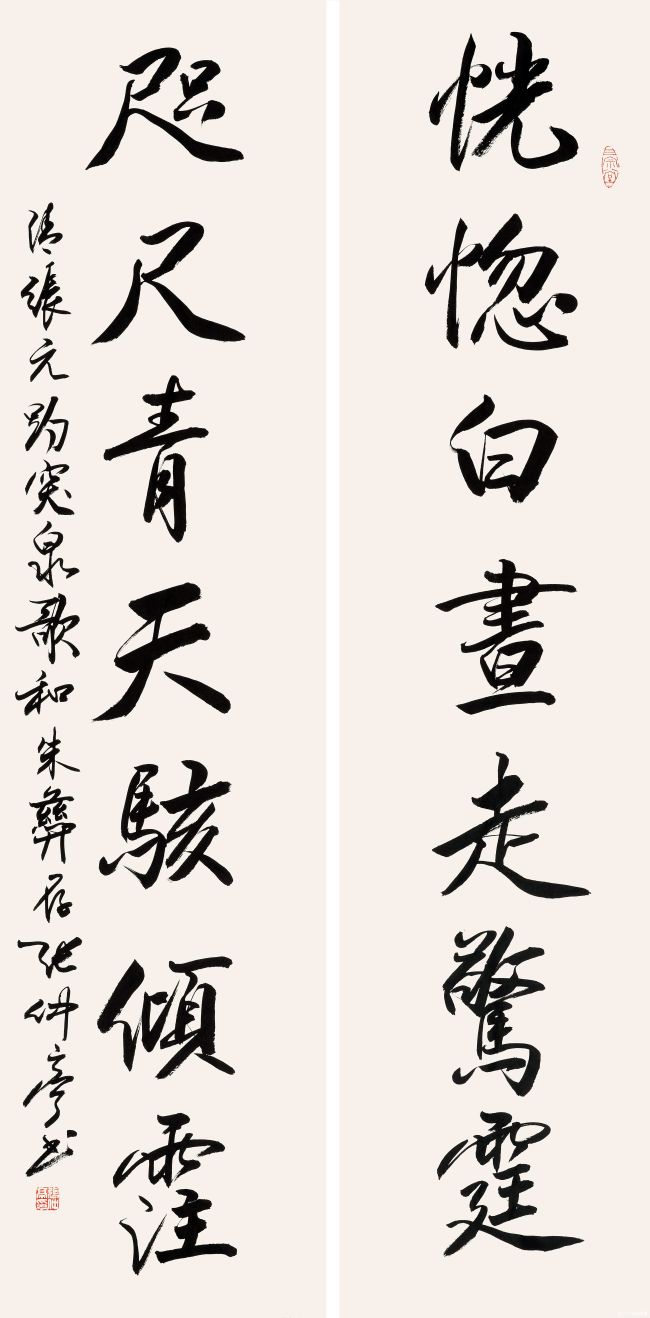 恍惚白晝走驚霆
咫尺青天駭傾霔
清張元趵突泉歌和朱彝存张仲亭书